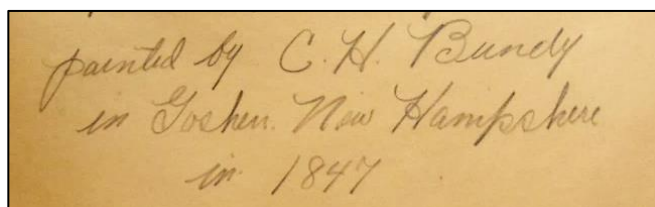 painted by C. H. Bundy
in Goshen. New Hampshire
in 1847